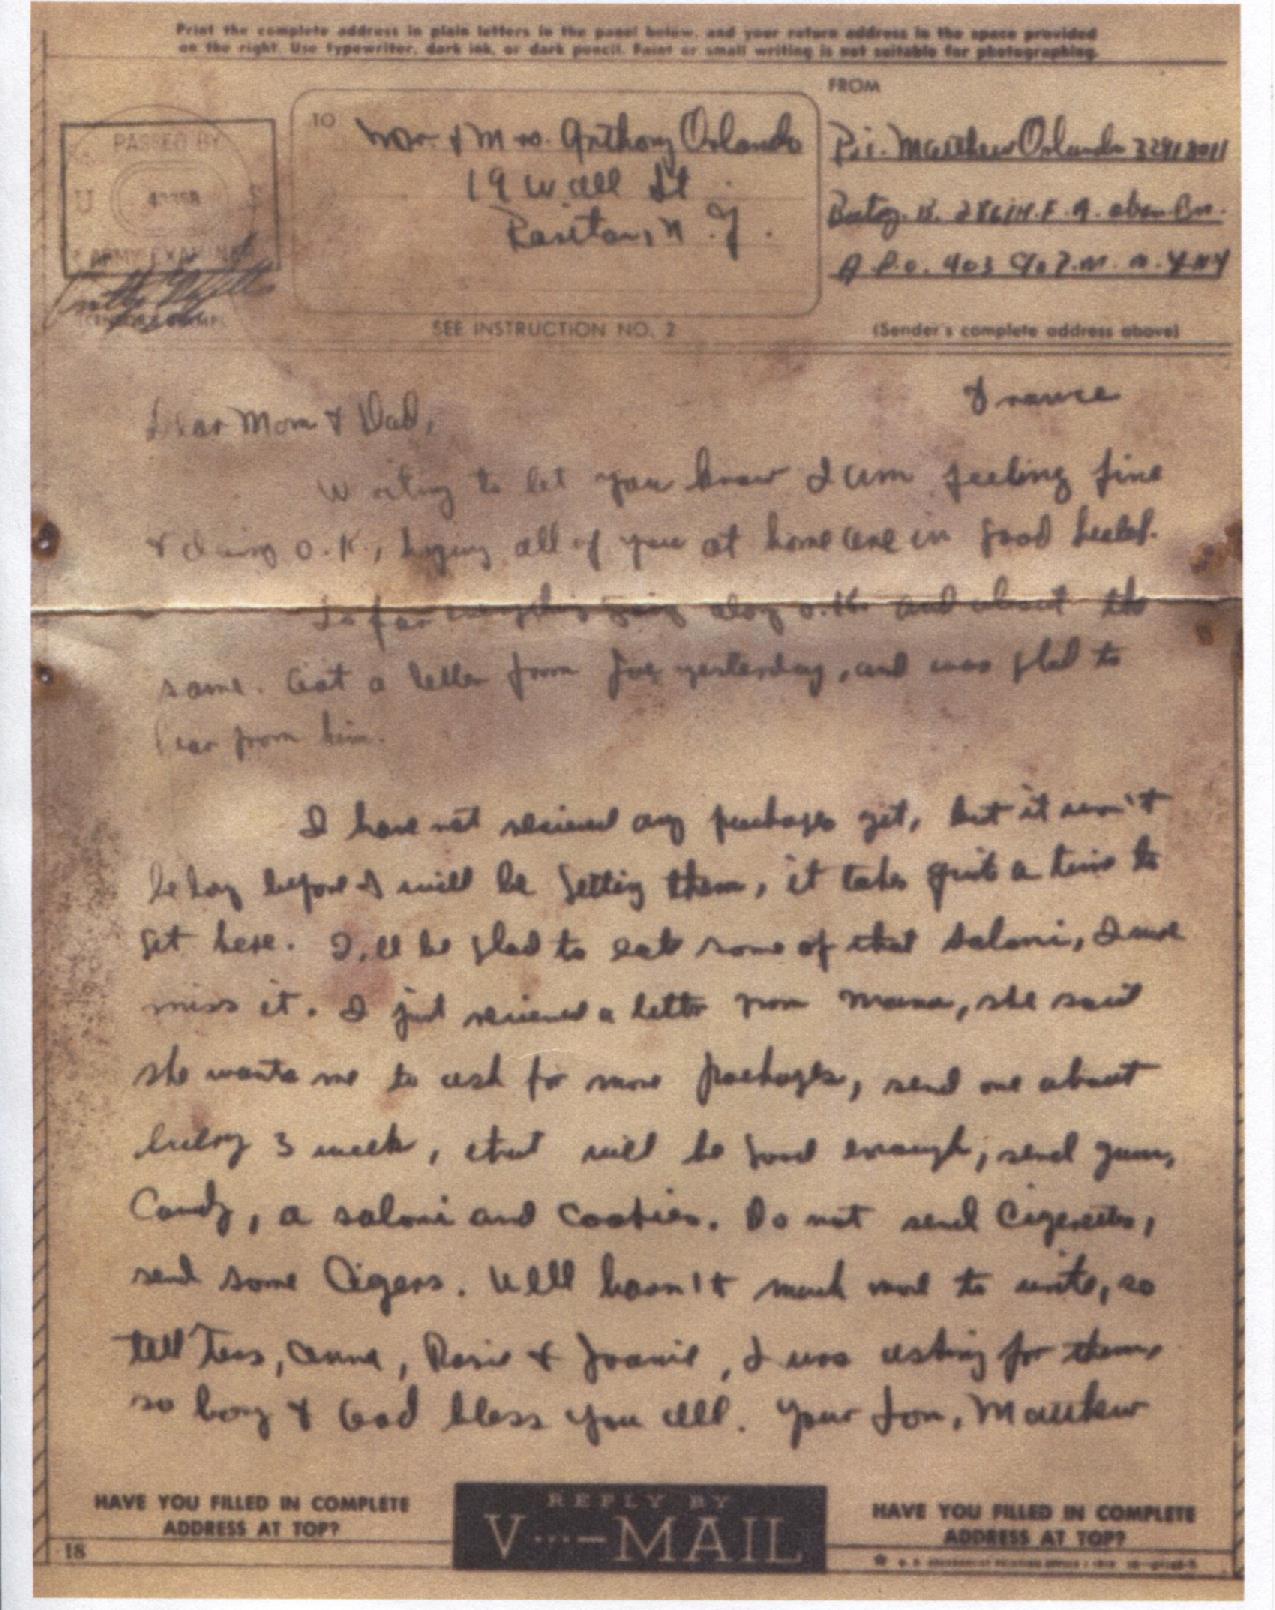 Print the complete address in plain letters in the panel below, and your return address in the space provided
on the right. Use typewriter, dark ink, or dark pencil. Faint or small writing is not suitable for photographing.
PASSED BY
U S
ARMY EXAMINER
TO
Mr. & Mrs. Anthony Orlando
19 Wall St
Raritan, N.J.
SEE INSTRUCTION NO. 2
FROM
Matthew Orlando
A.P.O. 403
(Sender's complete address above)
France
Dear Mom & Dad,
Writing to let you know I am feeling fine
& doing O.K., hoping all of you at home are in good
So far going along O.K. and about the
same. Got a letter from Joe yesterday, and was glad to
hear from him.
I have not recieved any packages yet, but it won't
be long before I will be getting them, it takes quite a time to
get here. I,ll be glad to eat some of that salami, I sure
miss it. I just recieved a letter from mama, she said
she wants me to ask for more packages, send one about
every 3 week, that will be good enough, send gum,
Candy, a salami and cookies. Do not send Cigerettes,
send some Cigars. Well hasn't much more to write, so
tell Tess, Anna, Rosie & Joanie, I was asking for them,
so long & God bless you all. Your Son, Matthew
HAVE YOU FILLED IN COMPLETE
ADDRESS AT TOP?
REPLY BY
V···—MAIL
HAVE YOU FILLED IN COMPLETE
ADDRESS AT TOP?
18